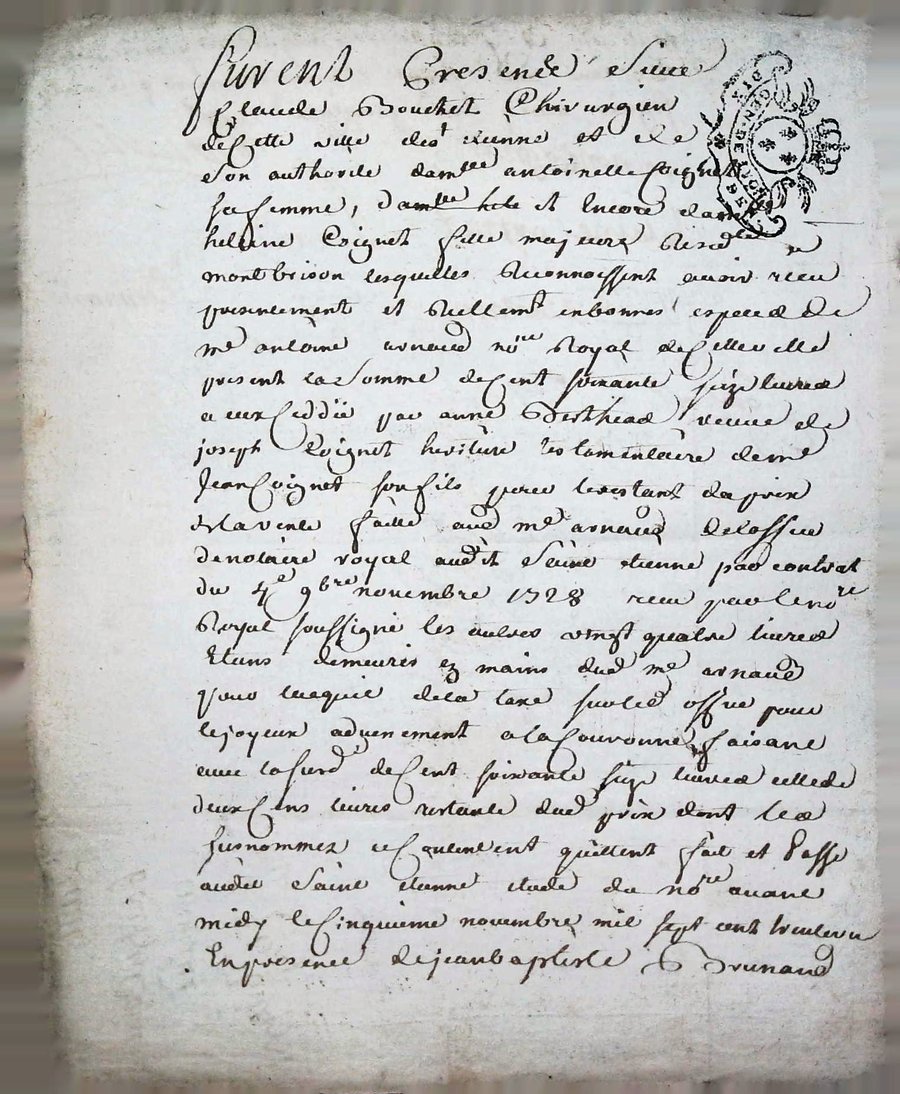 furent Presents Sieur
Claude Bouchet Chirurgien
de Cette ville de st etienne et de
Son authorité damlle antoinette Coignet
sa femme, damlle et Encore damlle
heleine Coignet fille majeure Resid a
montbrison lesquelles Reconnoissent avoir receu
presentement et Réellemt en bonnes especes de
me antoine arnaud nore Royal de Cette ville
present la Somme de Cent soixante seize livres
a eux ceddée par anne Berthead veuve de
joseph Coignet heritiere testamentaire de me
Jean Coignet son fils pour le restant du prix
de la vente faitte aud me arnaud de l'office
de notaire royal audit Saint etienne par contrat
du 4e 9bre novembre 1728 receu par le nore
Royal soussigné les autres vingt quatre livres
Etans demeurés ez mains dud me arnaud
pour lacquit de la taxe sur led office pour
le joyeux advenement a la Couronne, faisant
avec la susd de Cent soixante seize livres celle de
deux Cens livres restante dud prix dont les
susnommez se Contentent quittent fait et Passé
audit Saint etienne etude du nore avant
midy le Cinquieme novembre mil sept cent trente un
En presence de jean baptiste Brunand
GEN·DE LYON